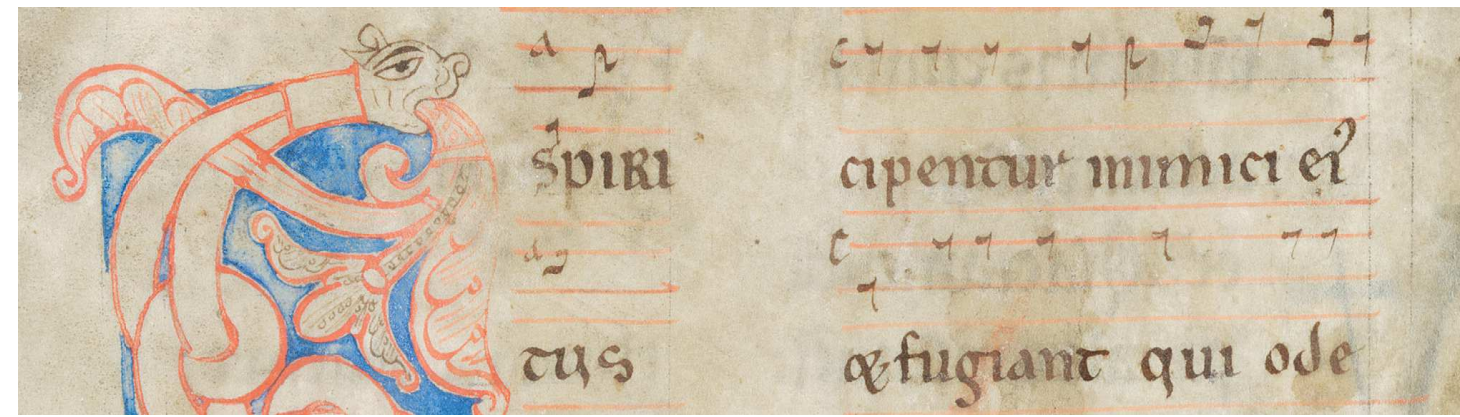 SPIRI
TUS
cipentur inimici ei⁹
& fugiant qui ode